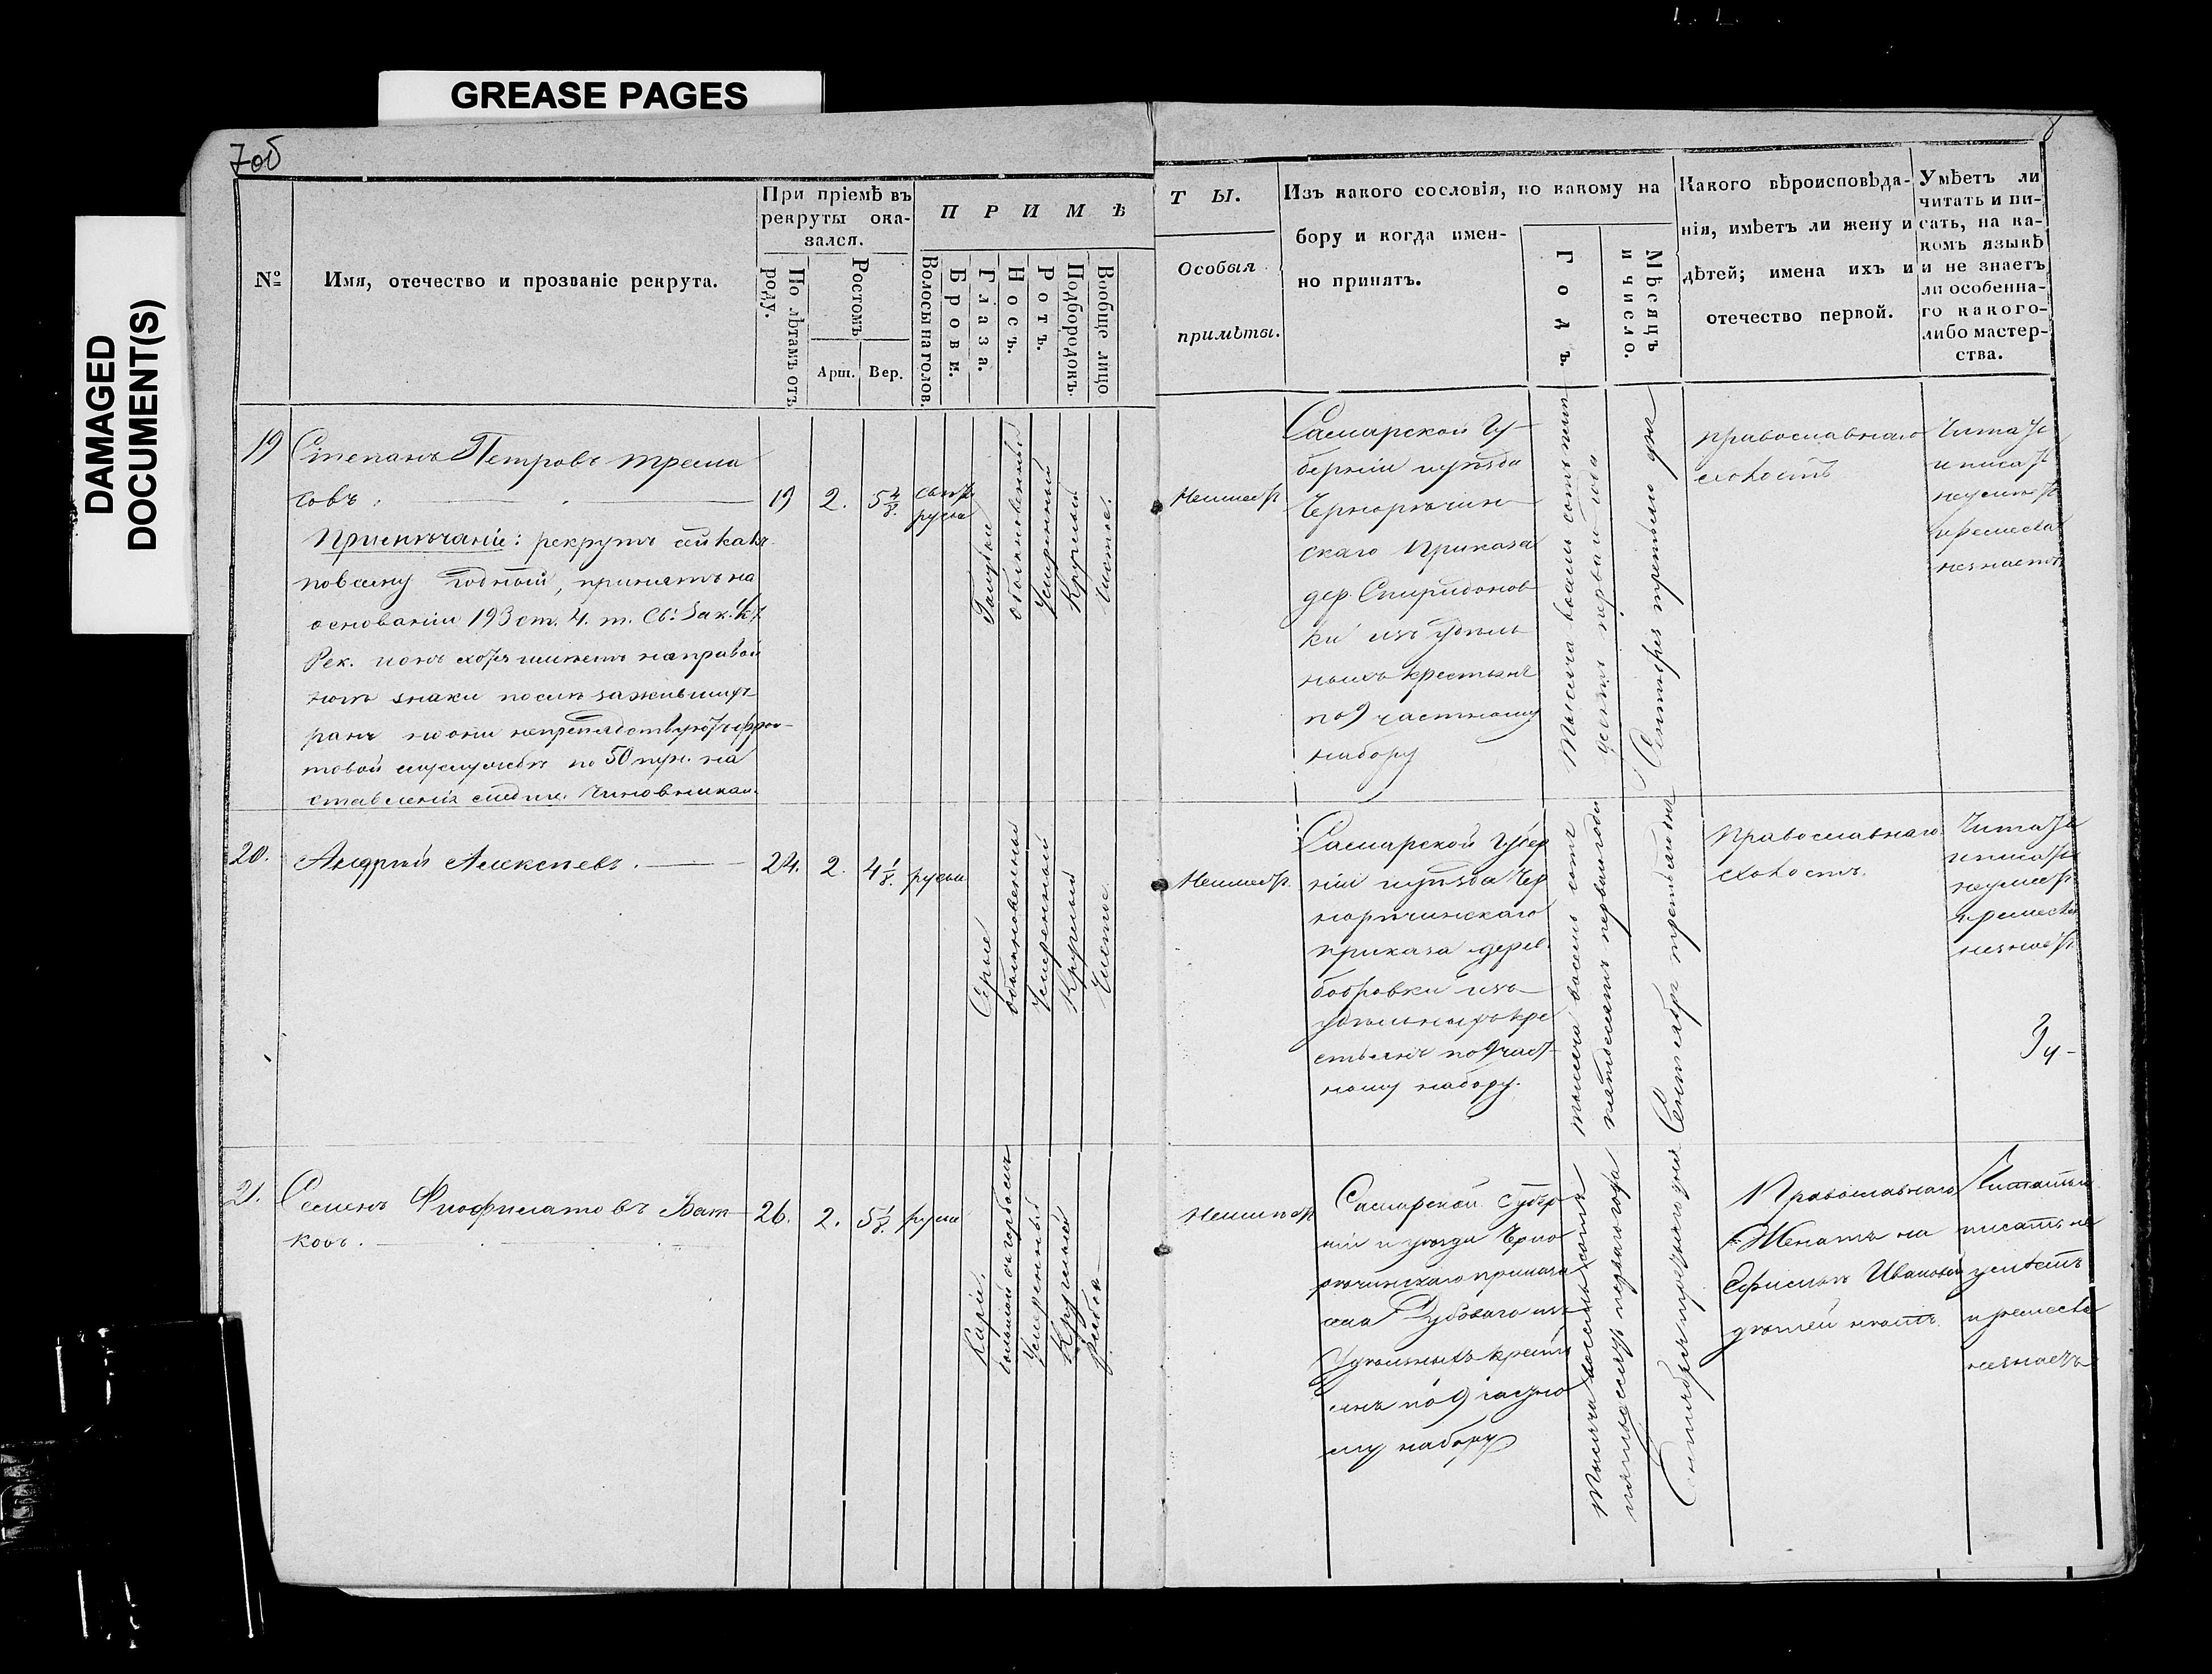 GREASE PAGES
DAMAGED
DOCUMENT(S)
7об
8
№
Имя, отечество и прозваніе рекрута.
При пріемѣ въ
рекруты ока-
зался.
По лѣтамъ отъ
роду.
Ростомъ
Арш.
Вер.
П Р И М Ѣ
Волосы на голов.
Брови.
Глаза.
Носъ.
Ротъ.
Подбородокъ.
Вообще лицо
Т Ы.
Особыя
примѣты.
Изъ какого сословія, по какому на
бору и когда имен-
но принятъ.
Годъ.
Мѣсяцъ
и число.
Какого вѣроисповѣда-
нія, имѣетъ ли жену и
дѣтей; имена ихъ и
отечество первой.
Умѣетъ ли
читать и пи-
сать, на ка-
комъ языкѣ
и не знаетъ
ли особенна-
го какого-
либо мастер-
ства.
19
Степанъ Петровъ Трема
совъ.
19
2.
5 4/8.
свѣтл.
русые
Голубые
обыкновенный
Умеренный
Круглый
Чистое.
Примѣчаніе: рекрутъ сей какъ
повсему годный, принятъ на
основаніи 193 ст. 4. т. Св. Зак.
Рек. и онъ хотя имѣетъ на правой
ногѣ знаки послѣ зажившихъ
ранъ но они непрепятствуютъ фрон-
товой службѣ по 50 пун. на
ставленія медиц. Чиновникам.
Неимѣетъ
Самарской Гу-
берніи и уѣзда
Чернорѣчин-
скаго Приказа
дер. Спиридонов
ки изъ удѣль
ныхъ крестьянъ
по 9 частному
набору
Тысяча восемь сотъ пять
десятъ перваго года
Сентября третьяго дня
православнаго
холостъ
Читать
и писать
неумѣетъ
и ремесла
незнаетъ
20.
Андрей Алексѣевъ.
24.
2.
4 1/8.
русые
Сѣрые
обыкновенный
Умеренный
Круглый
Чистое.
Неимѣетъ
Самарской Губер
ніи и уѣзда Чер
норѣчинскаго
приказа дерев.
Бобровки изъ
удѣльныхъ кре
стьянъ по 9 част-
ному набору.
тысяча восемь сотъ
пятьдесятъ перваго года
Сентября третьяго дня
Православнаго
Холостъ.
Читать
и писать
неумѣетъ
и ремесла
незнаетъ
21.
Семенъ Фиофилатовъ Ват
ковъ.
26.
2.
5 1/8.
русые
Каріе.
большой съ горбомъ
Умеренный
Круглый
рябое
Неимѣетъ
Самарской Губер
ніи и уѣзда Черно
рѣчинскаго приказа
села Дубоваго изъ
Удѣльныхъ кресть
янъ по 9 частно
му набору
Тысяча восемь сотъ
пятьдесятъ перваго года
Сентября третьяго дня
Православнаго
Женатъ на
Ефимьѣ Ивановой
дѣтей нѣтъ
Читать и
писать не
умѣетъ
и ремесла
незнаетъ